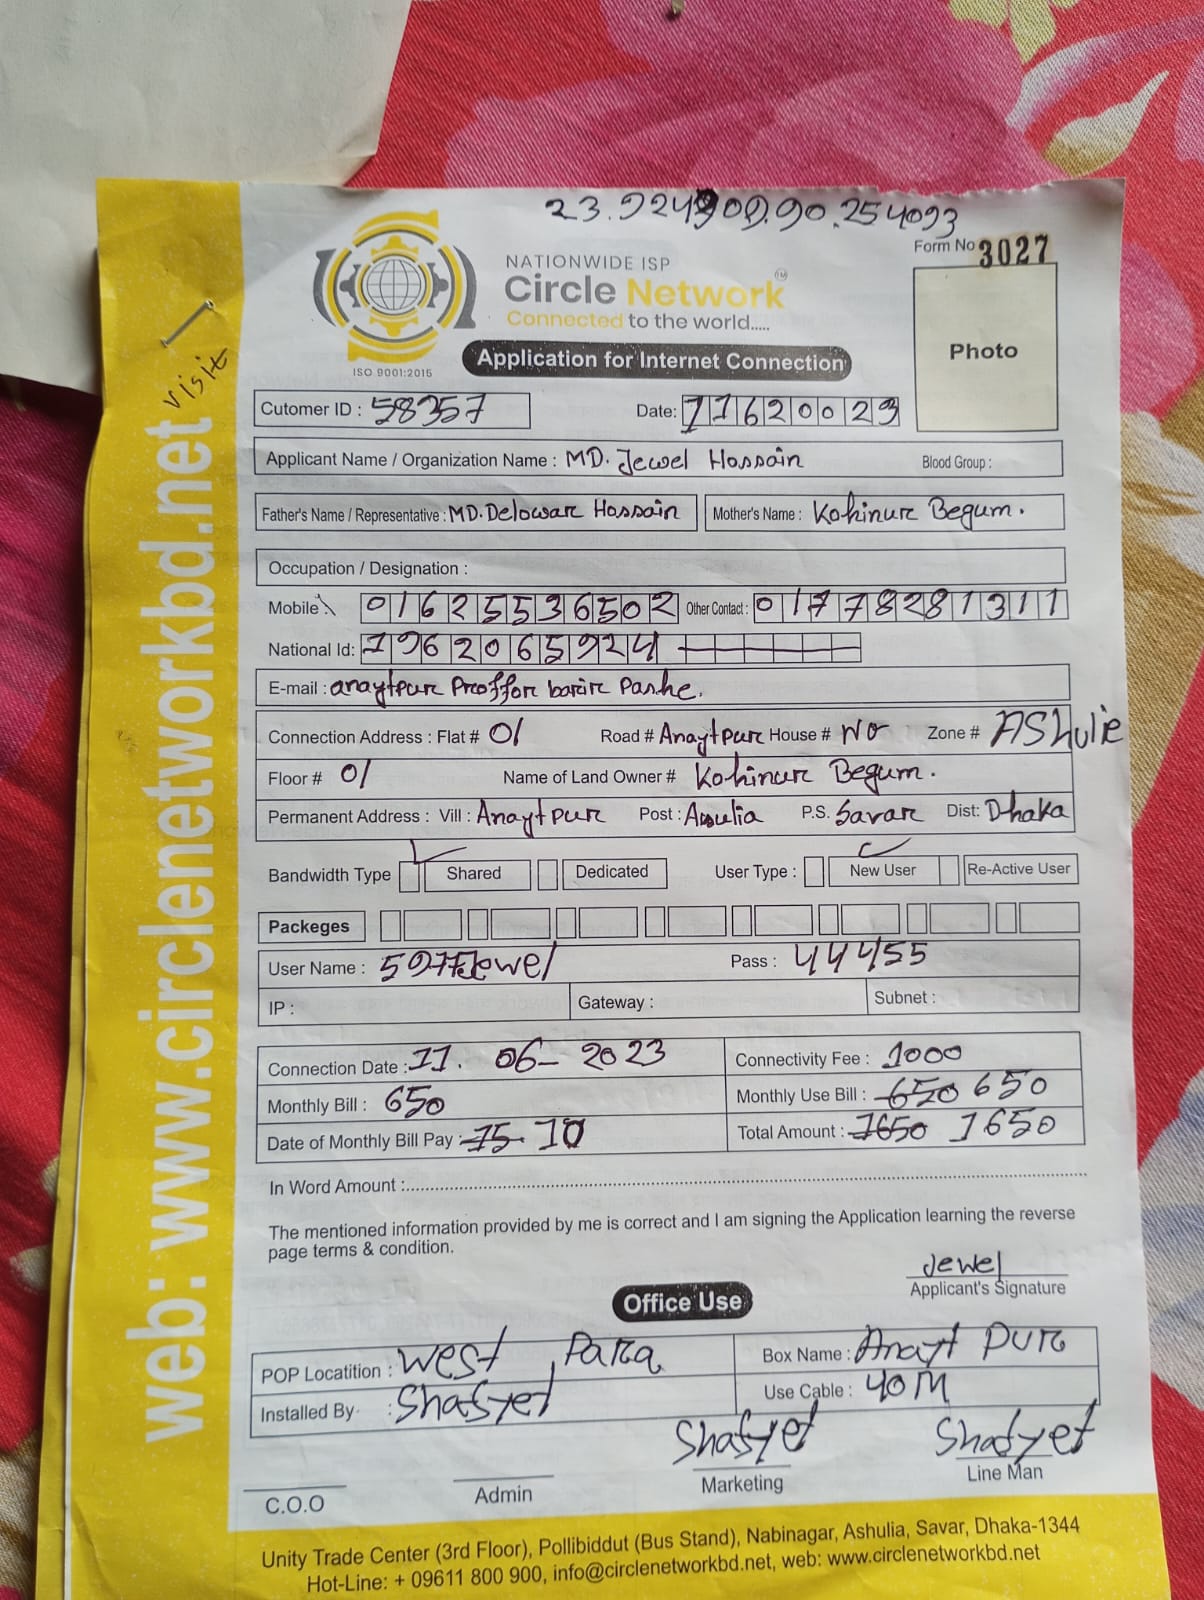 23.924909.90.254093
Form No 3027
NATIONWIDE ISP
Circle Network TM
Connected to the world.....
ISO 9001:2015
Application for Internet Connection
Photo
visit
Cutomer ID : 58357 Date: 11620023
Applicant Name / Organization Name : MD. Jewel Hossain Blood Group :
Father's Name / Representative : MD. Delowar Hossain Mother's Name : Kohinur Begum.
Occupation / Designation :
Mobile 01625536502 Other Contact : 01778281311
National Id: 1962065924
E-mail : anaytpur Proffor barir Pashe.
Connection Address : Flat # 01 Road # Anaytpur House # NO Zone # AShulie
Floor # 01 Name of Land Owner # Kohinur Begum.
Permanent Address : Vill : Anaytpur Post : Asulia P.S. Savar Dist: Dhaka
Bandwidth Type Shared Dedicated User Type : New User Re-Active User
Packeges
User Name : 5975Jewel Pass : 44455
IP : Gateway : Subnet :
Connection Date : 11. 06- 2023 Connectivity Fee : 1000
Monthly Bill : 650 Monthly Use Bill : 650 650
Date of Monthly Bill Pay : 15. 10 Total Amount : 1650 1650
In Word Amount :
The mentioned information provided by me is correct and I am signing the Application learning the reverse
page terms & condition.
Jewel
Applicant's Signature
Office Use
POP Locatition : West Para Box Name : Anayt Pur
Installed By : Shafyet Use Cable : 40M
Shafyet Shafyet
C.O.O Admin Marketing Line Man
Unity Trade Center (3rd Floor), Pollibiddut (Bus Stand), Nabinagar, Ashulia, Savar, Dhaka-1344
Hot-Line: + 09611 800 900, info@circlenetworkbd.net, web: www.circlenetworkbd.net
web: www.circlenetworkbd.net